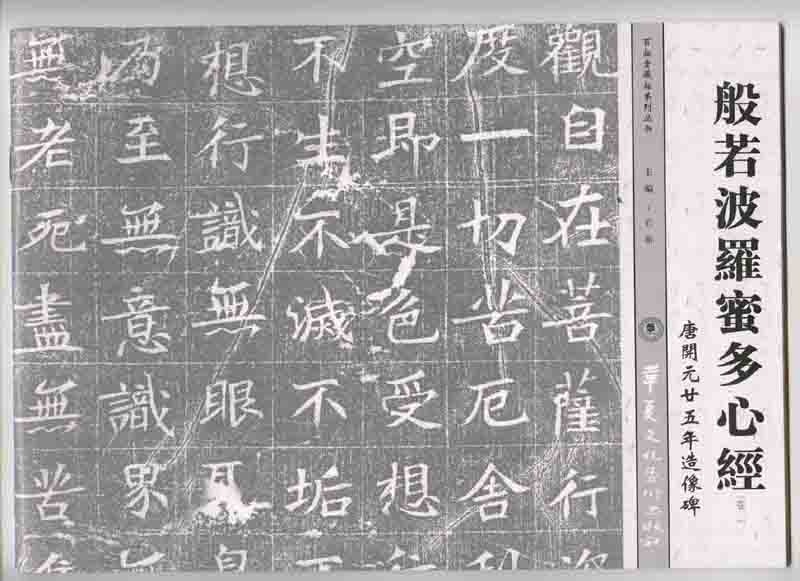 般若波羅蜜多心經
唐開元廿五年造像碑
主編
觀自在菩薩行深
度一切苦厄舍利
空即是色受想行
不生不滅不垢不
想行識無眼耳鼻
至無意識界無
無老死盡無苦集